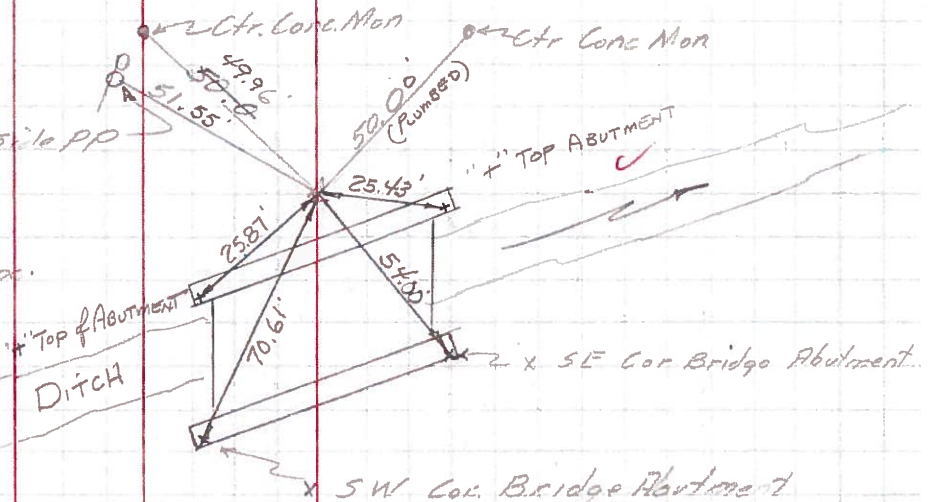 Ctr. Conc. Mon
Ctr Conc Mon
49.96'
50.0
51.55'
50.00'
(PLUMBED)
side PP
"+" TOP ABUTMENT
25.43'
25.87'
54.00'
70.61'
"+" TOP of ABUTMENT
DITCH
x SE Cor Bridge Abutment
x SW Cor. Bridge Abutment